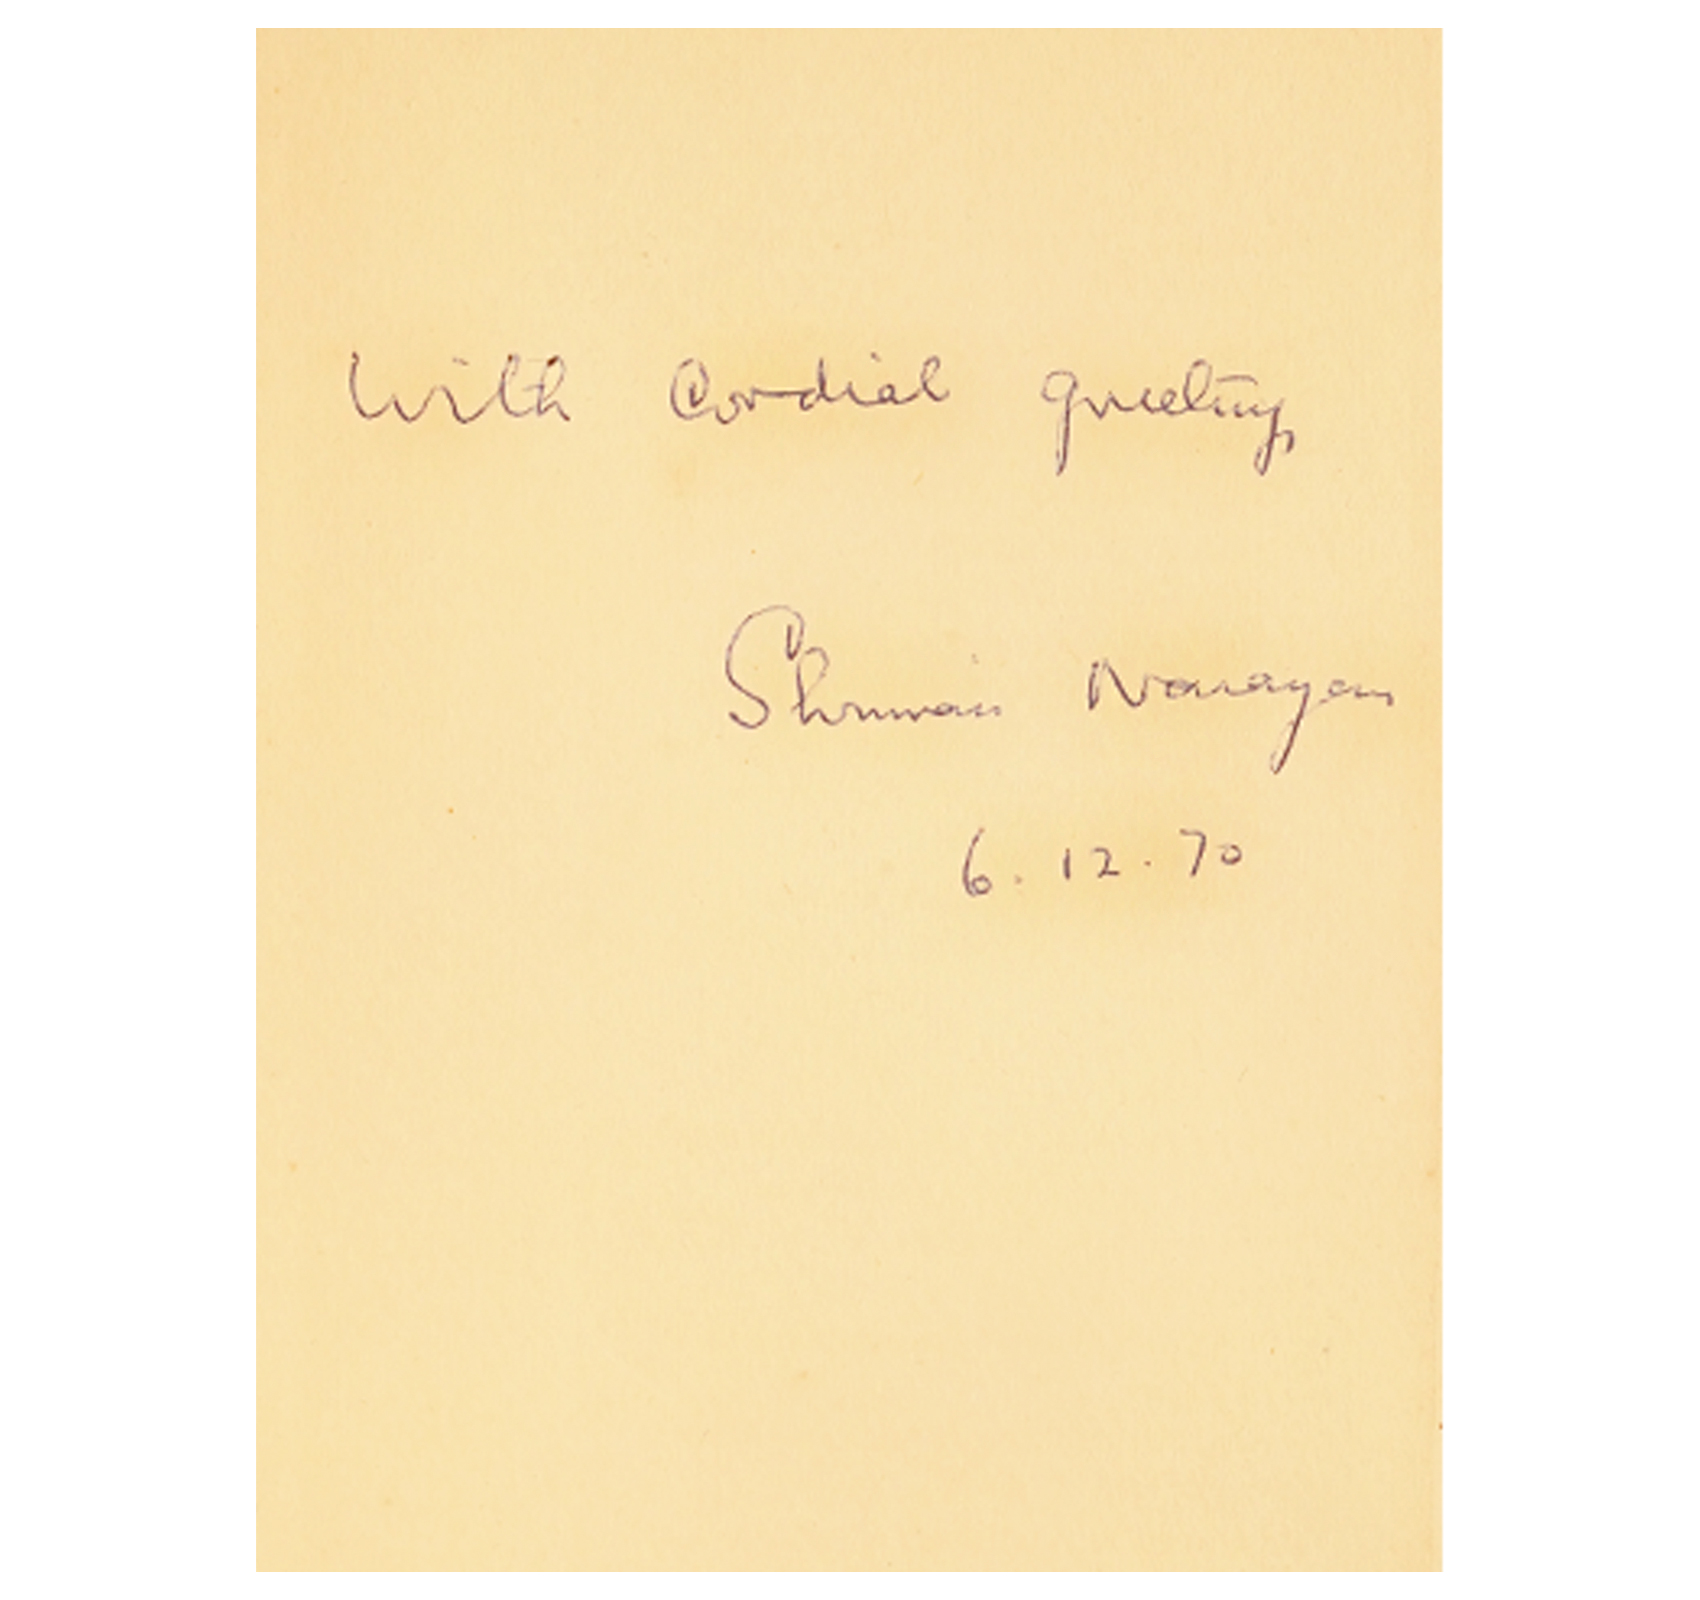 With Cordial greetings
Shriman Narayan
6.12.70